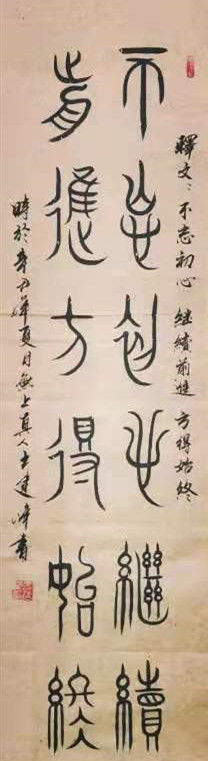 釋文:不忘初心 继續前進 方得始終
不忘初心繼續
前進方得始終
時於辛丑年夏日上真人建峰書